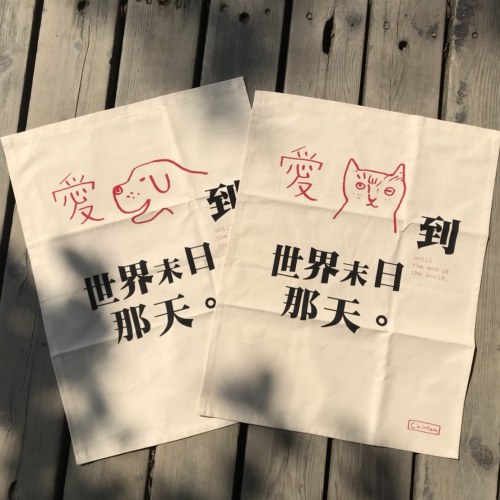 愛
到
until
the
the
世界末日
那天。
愛
到
until
the end of
the world.
世界末日
那天。